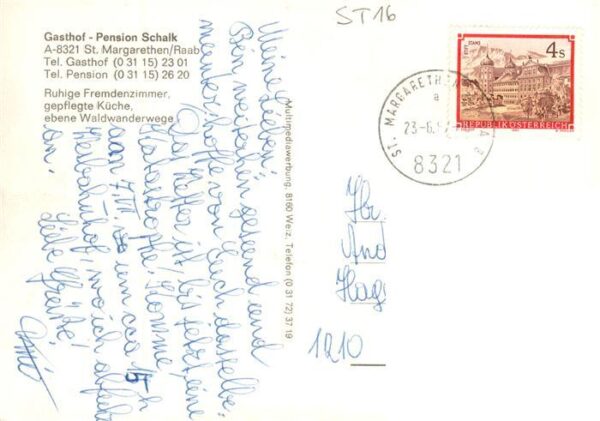 Gasthof - Pension Schalk
A-8321 St. Margarethen/Raab
Tel. Gasthof (0 31 15) 23 01
Tel. Pension (0 31 15) 26 20
Ruhige Fremdenzimmer,
gepflegte Küche,
ebene Waldwanderwege
ST16
STIFT STAMS
4 S
REPUBLIK ÖSTERREICH
ST. MARGARETHEN RAAB
a
23.-6.
8321
Meine Lieben!
Bin weiterhin gesund und
munter, hoffe von Euch dasselbe.
Das Wetter ist bis jetzt eine
Katastrophe! Komme
am 7.VII. so um cca 15 h
Westbahnhof, wo ich
an.
Liebe Grüße!
Multimediawerbung, 8160 Weiz, Telefon (0 31 72) 37 19
Hr.
And
Hag
1210